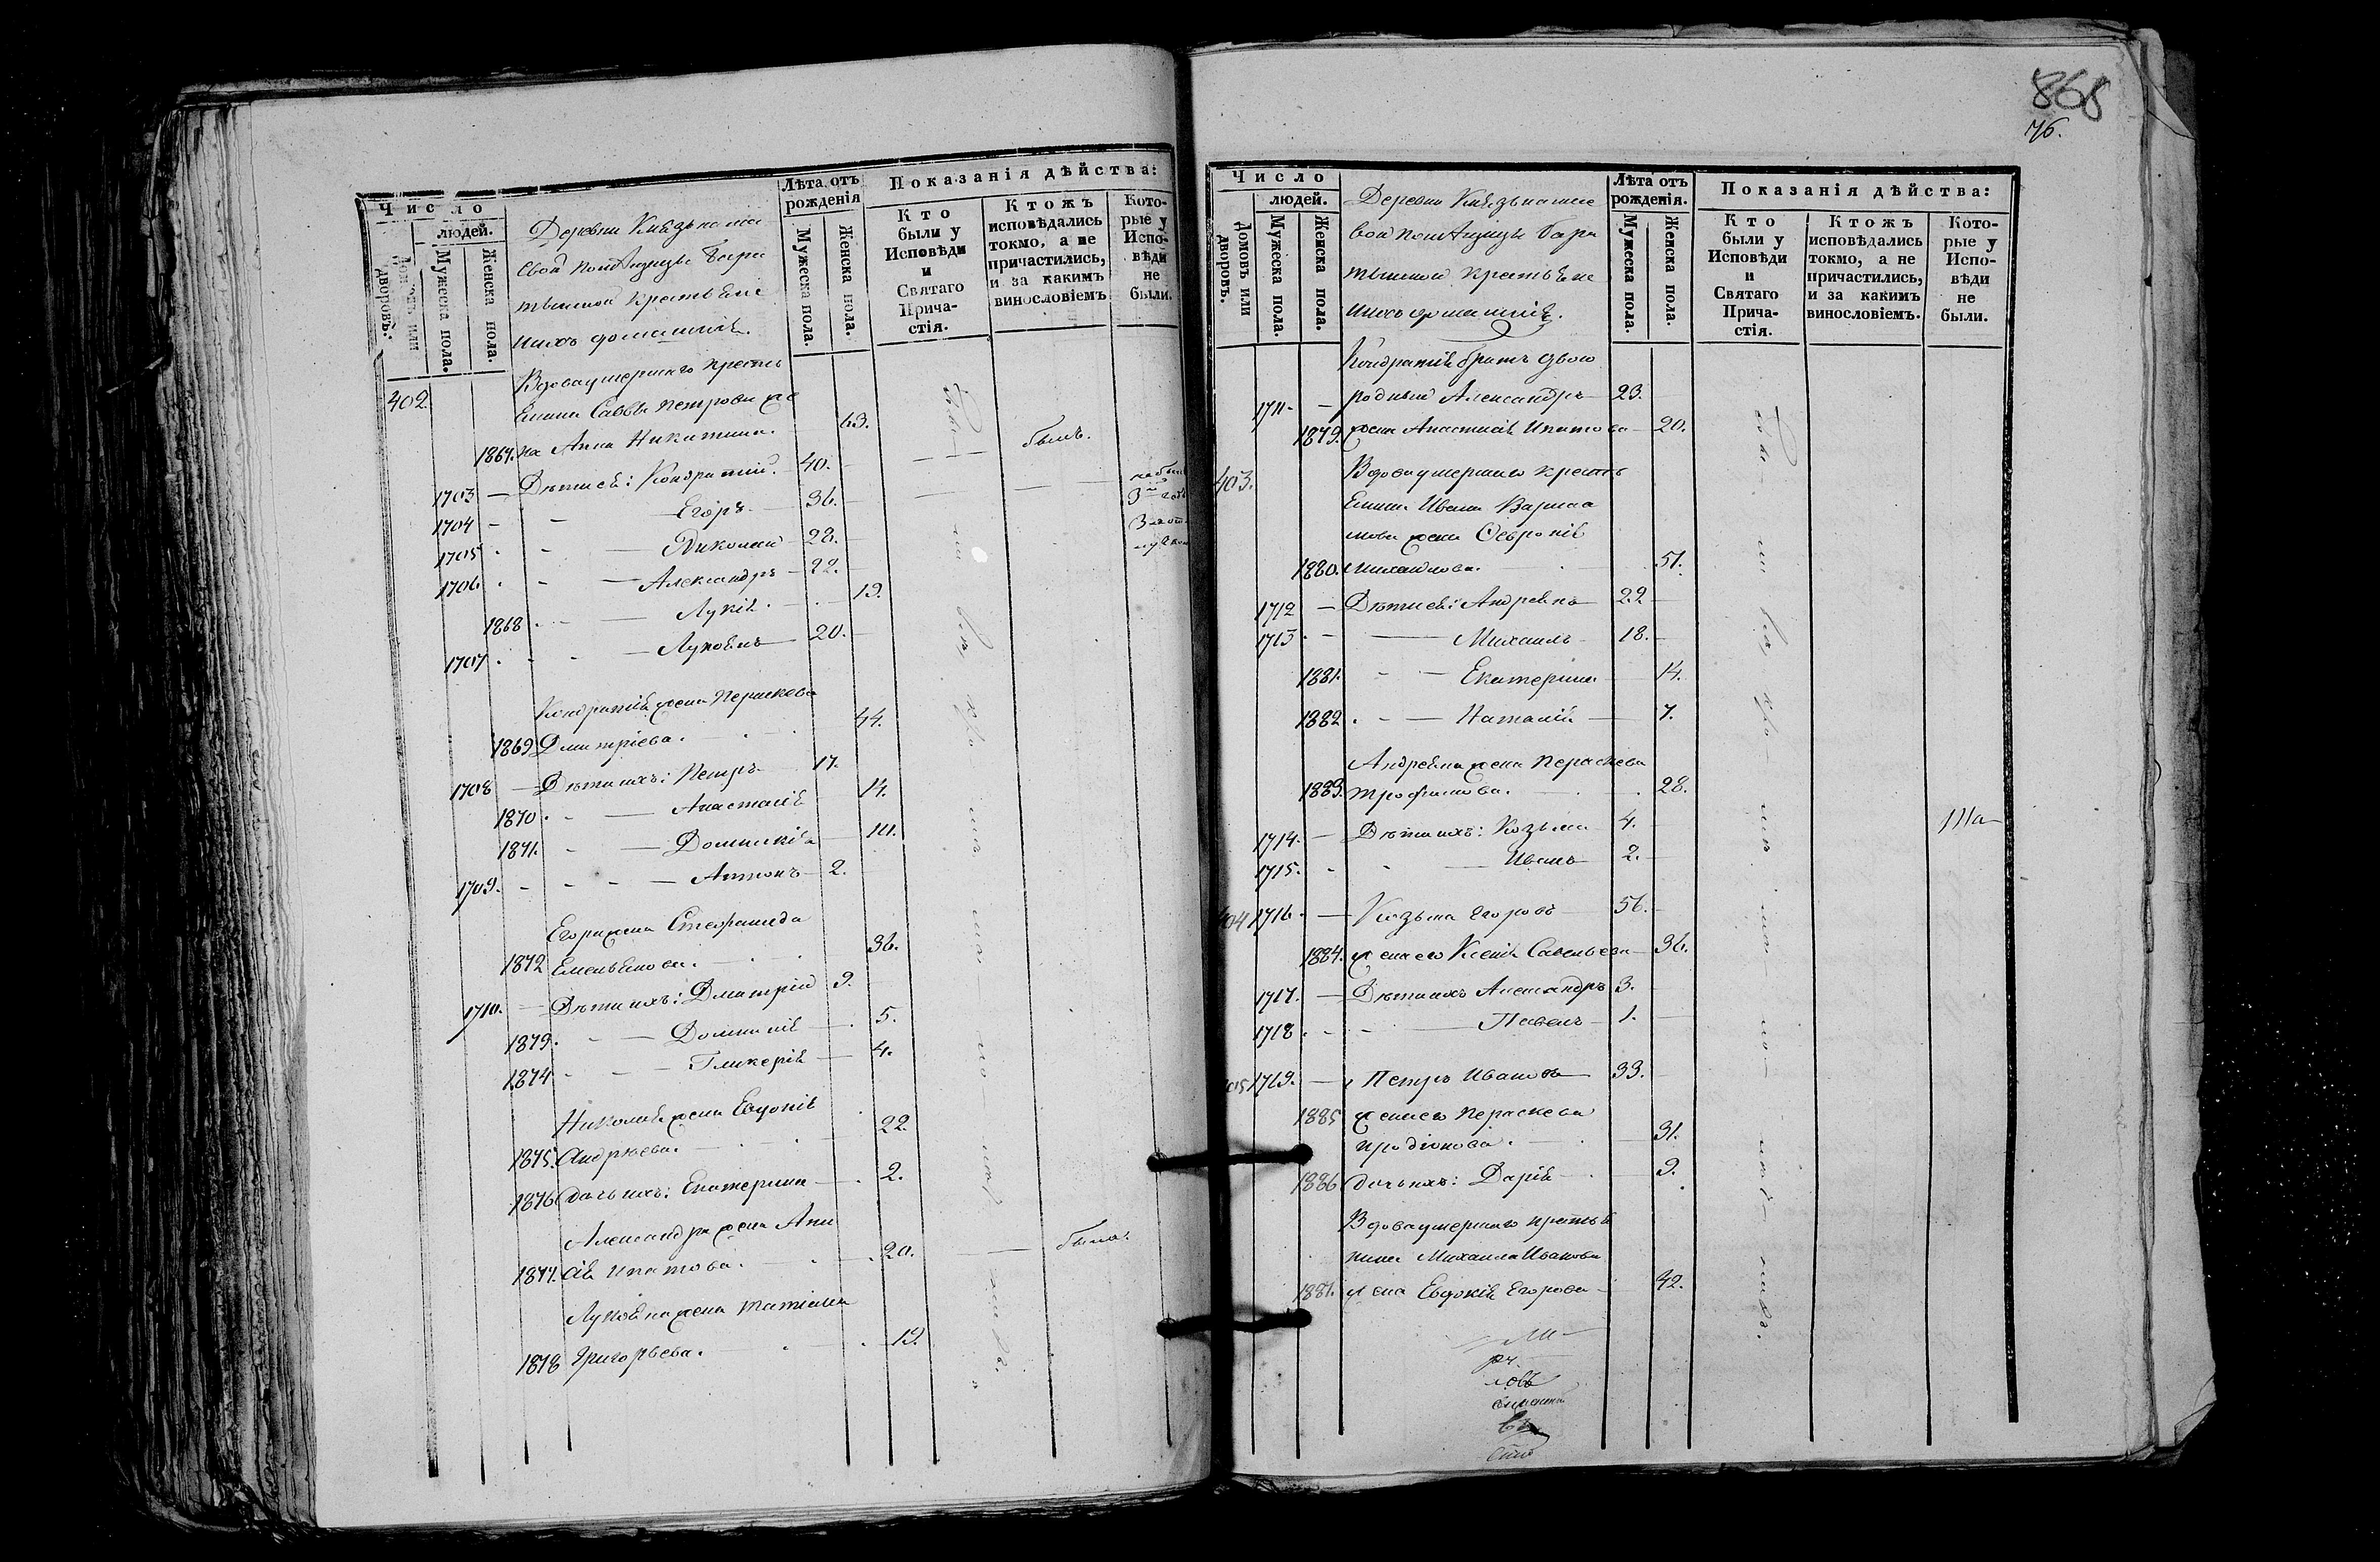 Число
людей.
Домовъ или дворовъ.
Мужеска пола.
Женска пола.
Деревни Князькаши
свой помѣщицы Бара
тынской крестьяне
ихъ домашнія.
Лѣта отъ рожденія
Мужеска пола.
Женска пола.
Показанія дѣйства:
Кто были у Исповѣди и Святаго Прича-стія.
Ктожъ исповѣдались токмо, а не причастились, и за какимъ винословіемъ
Кото-рые у Испо-вѣди не были.
402. Вдова умершаго кресть
янина Саввы Петрова же
1867. на Анна Никитина. 63. былъ.
1703 — Дѣти ея: Кондратій. 40.
1704 — Егоръ 36.
1705 — Николай 28.
1706. — Александръ 22.
1868 — Лукія 19.
1707 — Лукоянъ 20.
Кондратія жена Параскева
1869 Дмитріева. 44.
1708 — Дѣти ихъ: Петръ 17.
1870 — Анастасія 14.
1871. — Домникія 10.
1709. — Антонъ 2.
Егора жена Стефанида
1872 Емельянова. 36.
1710. — Дѣти ихъ: Дмитрій 9.
1873. — Домникія 5.
1874 — Гликерія 4.
Николая жена Евдокія
1875. Андреева. 22.
1876 Дочь ихъ: Екатерина 2.
Александра жена Ани
1877. сія Ипатова. 20. была.
Лукояна жена Татіана
1878 Григорьева. 19.
868
76.
Число
людей.
Домовъ или дворовъ.
Мужеска пола.
Женска пола.
Деревни Князькаши
свой помѣщицы Бара
тынской крестьяне
ихъ домашнія.
Лѣта отъ рожденія.
Мужеска пола.
Женска пола.
Показанія дѣйства:
Кто были у Исповѣди и Святаго Прича-стія.
Ктожъ исповѣдались токмо, а не причастились, и за какимъ винословіемъ.
Кото-рые у Испо-вѣди не были.
Кондратія братъ двою
1711. — родный Александръ 23.
1879. жена Анастасія Ипатова 20.
403. Вдова умершаго кресть
янина Ивана Варлаа
мова жена Февронія
1880. Михайлова. 51.
1712 — Дѣти ея: Андреянъ 22
1713 — Михаилъ 18.
1881. — Екатерина 14.
1882 — Наталія 7.
Андреяна жена Параскева
1883. Трофимова. 28.
1714. — Дѣти ихъ: Козьма 4.
1715. — Иванъ 2.
404 1716. — Козьма Егоровъ 56.
1884. жена его Ксенія Савельева 36.
1717. — Дѣти ихъ Александръ 3.
1718 — Павелъ 1.
405 1719. — Петръ Ивановъ 33.
1885 жена его Параскева
Иродіонова. 31.
1886 Дочь ихъ: Дарія 9.
Вдова умершаго крестья
нина Михаила Иванова
1887. жена Евдокія Егорова 42.